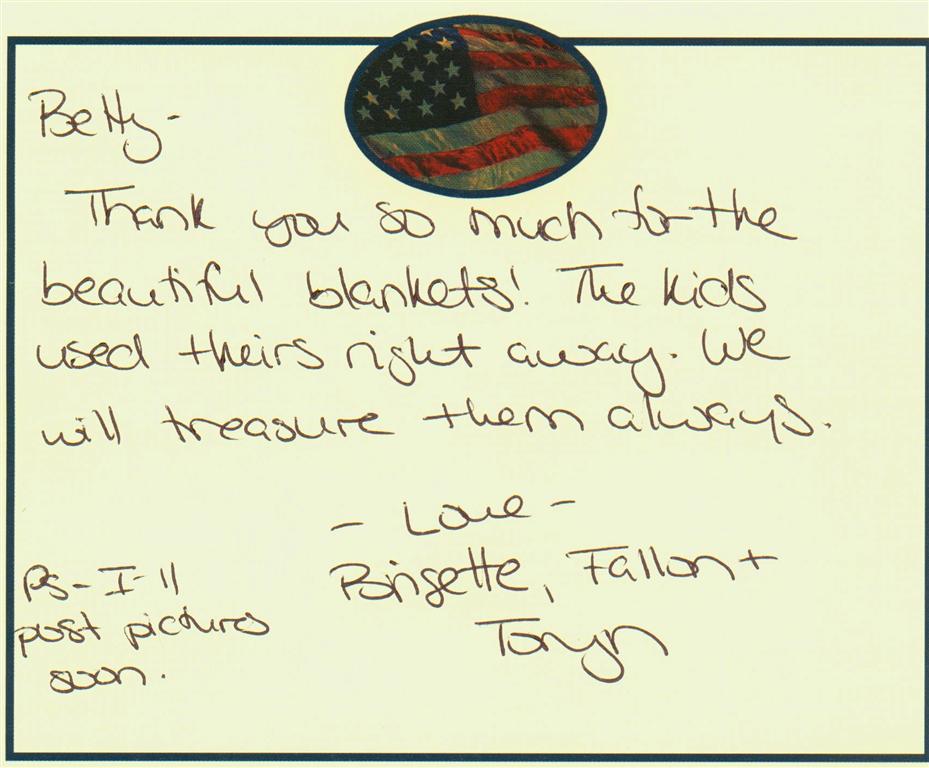 Betty-
Thank you so much for the
beautiful blankets! The kids
used theirs right away. We
will treasure them always.
- Love -
Brigette, Fallon +
Toryn
Ps- I'll
post pictures
soon.